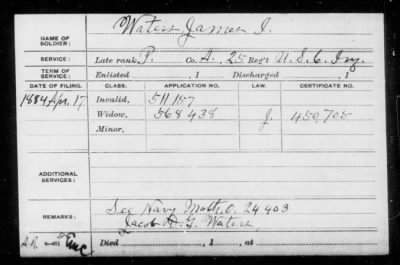 NAME OF SOLDIER: Waters, James I.
SERVICE: Late rank, P. Co. A, 25 Reg't U.S.C. Inf.
TERM OF SERVICE: Enlisted , 1 Discharged , 1
DATE OF FILING. CLASS. APPLICATION NO. LAW. CERTIFICATE NO.
1884 Apr. 17 Invalid, 511 157
Widow, 568 438 J. 450,705
Minor,
ADDITIONAL SERVICES:
REMARKS: See Navy Moth. O. 24403
Jacob H. G. Waters,
Died , 1 , at